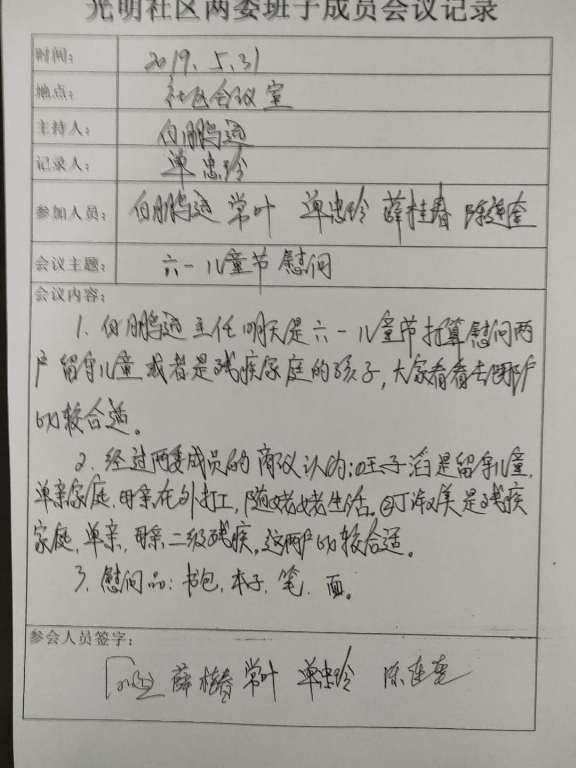 光明社区两委班子成员会议记录
时间： 2019.5.31
地点： 社区会议室
主持人： 白鹏遥
记录人： 单忠玲
参加人员： 白鹏遥 常叶 单忠玲 薛桂春 陈连奎
会议主题： 六一儿童节慰问
会议内容：
1. 白鹏遥主任明天是六一儿童节打算慰问两
户留守儿童或者是残疾家庭的孩子，大家看看去哪户
比较合适。
2. 经过两委成员的商议认为：①王子滔是留守儿童，
单亲家庭，母亲在外打工，随姥姥生活。②丁淑美是残疾
家庭，单亲，母亲二级残疾，这两户比较合适。
3. 慰问品：书包，本子，笔，面。
参会人员签字：
薛桂春 常叶 单忠玲 陈连奎